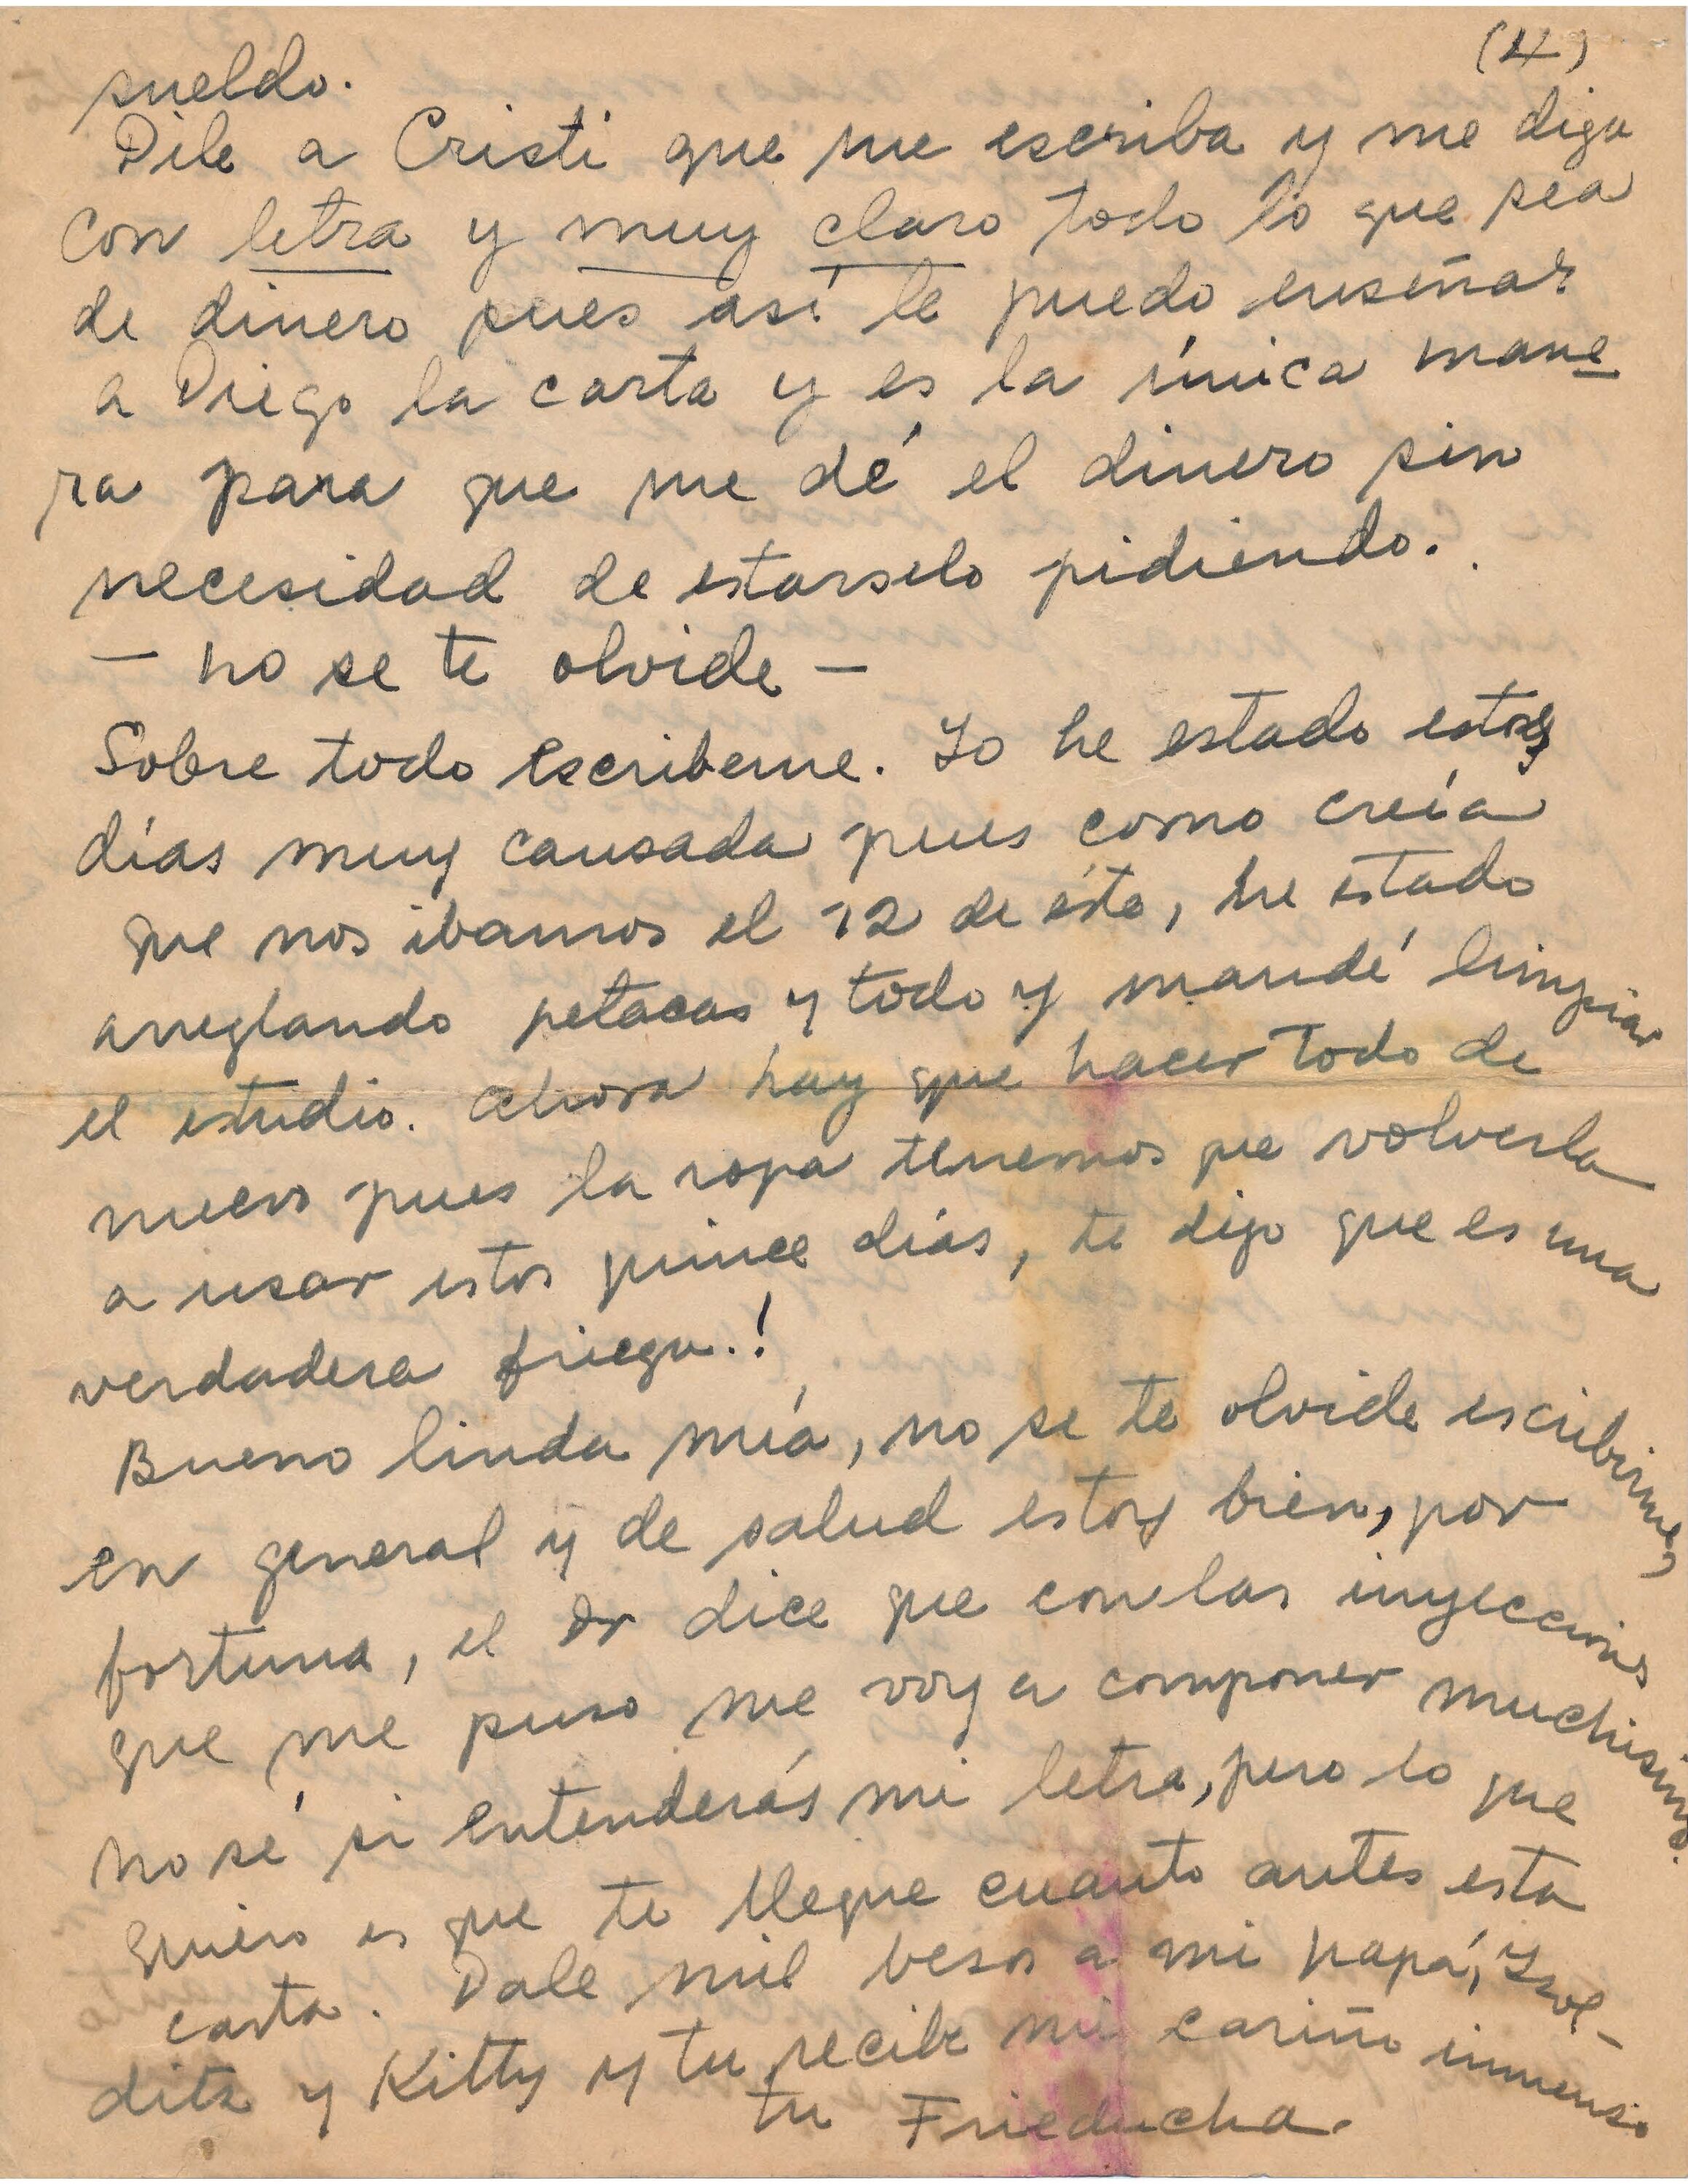 (4)
sueldo.
Dile a Cristi que me escriba y me diga
con letra y muy claro todo lo que sea
de dinero pues así le puedo enseñar
a Diego la carta y es la única mane
ra para que me dé el dinero sin
necesidad de estarselo pidiendo.
— no se te olvide —
Sobre todo escribeme. Yo he estado estos
días muy cansada pues como creía
que nos ibamos el 12 de éste, he estado
arreglando petacas y todo y mandé limpiar
el estudio. Ahora hay que hacer todo de
nuevo pues la ropa tenemos que volverla
a usar estos quince días, te digo que es una
verdadera friega.!
Bueno linda mía, no se te olvide escribirme,
en general y de salud estoy bien, por
fortuna, el Dr dice que con las inyecciones
que me puso me voy a componer muchisimo.
no sé si entenderás mi letra, pero lo que
quiero es que te llegue cuanto antes esta
carta. Dale mil besos a mi papá, Isol-
dita y Kitty y tu recibe mi cariño inmenso
tu Frieducha.